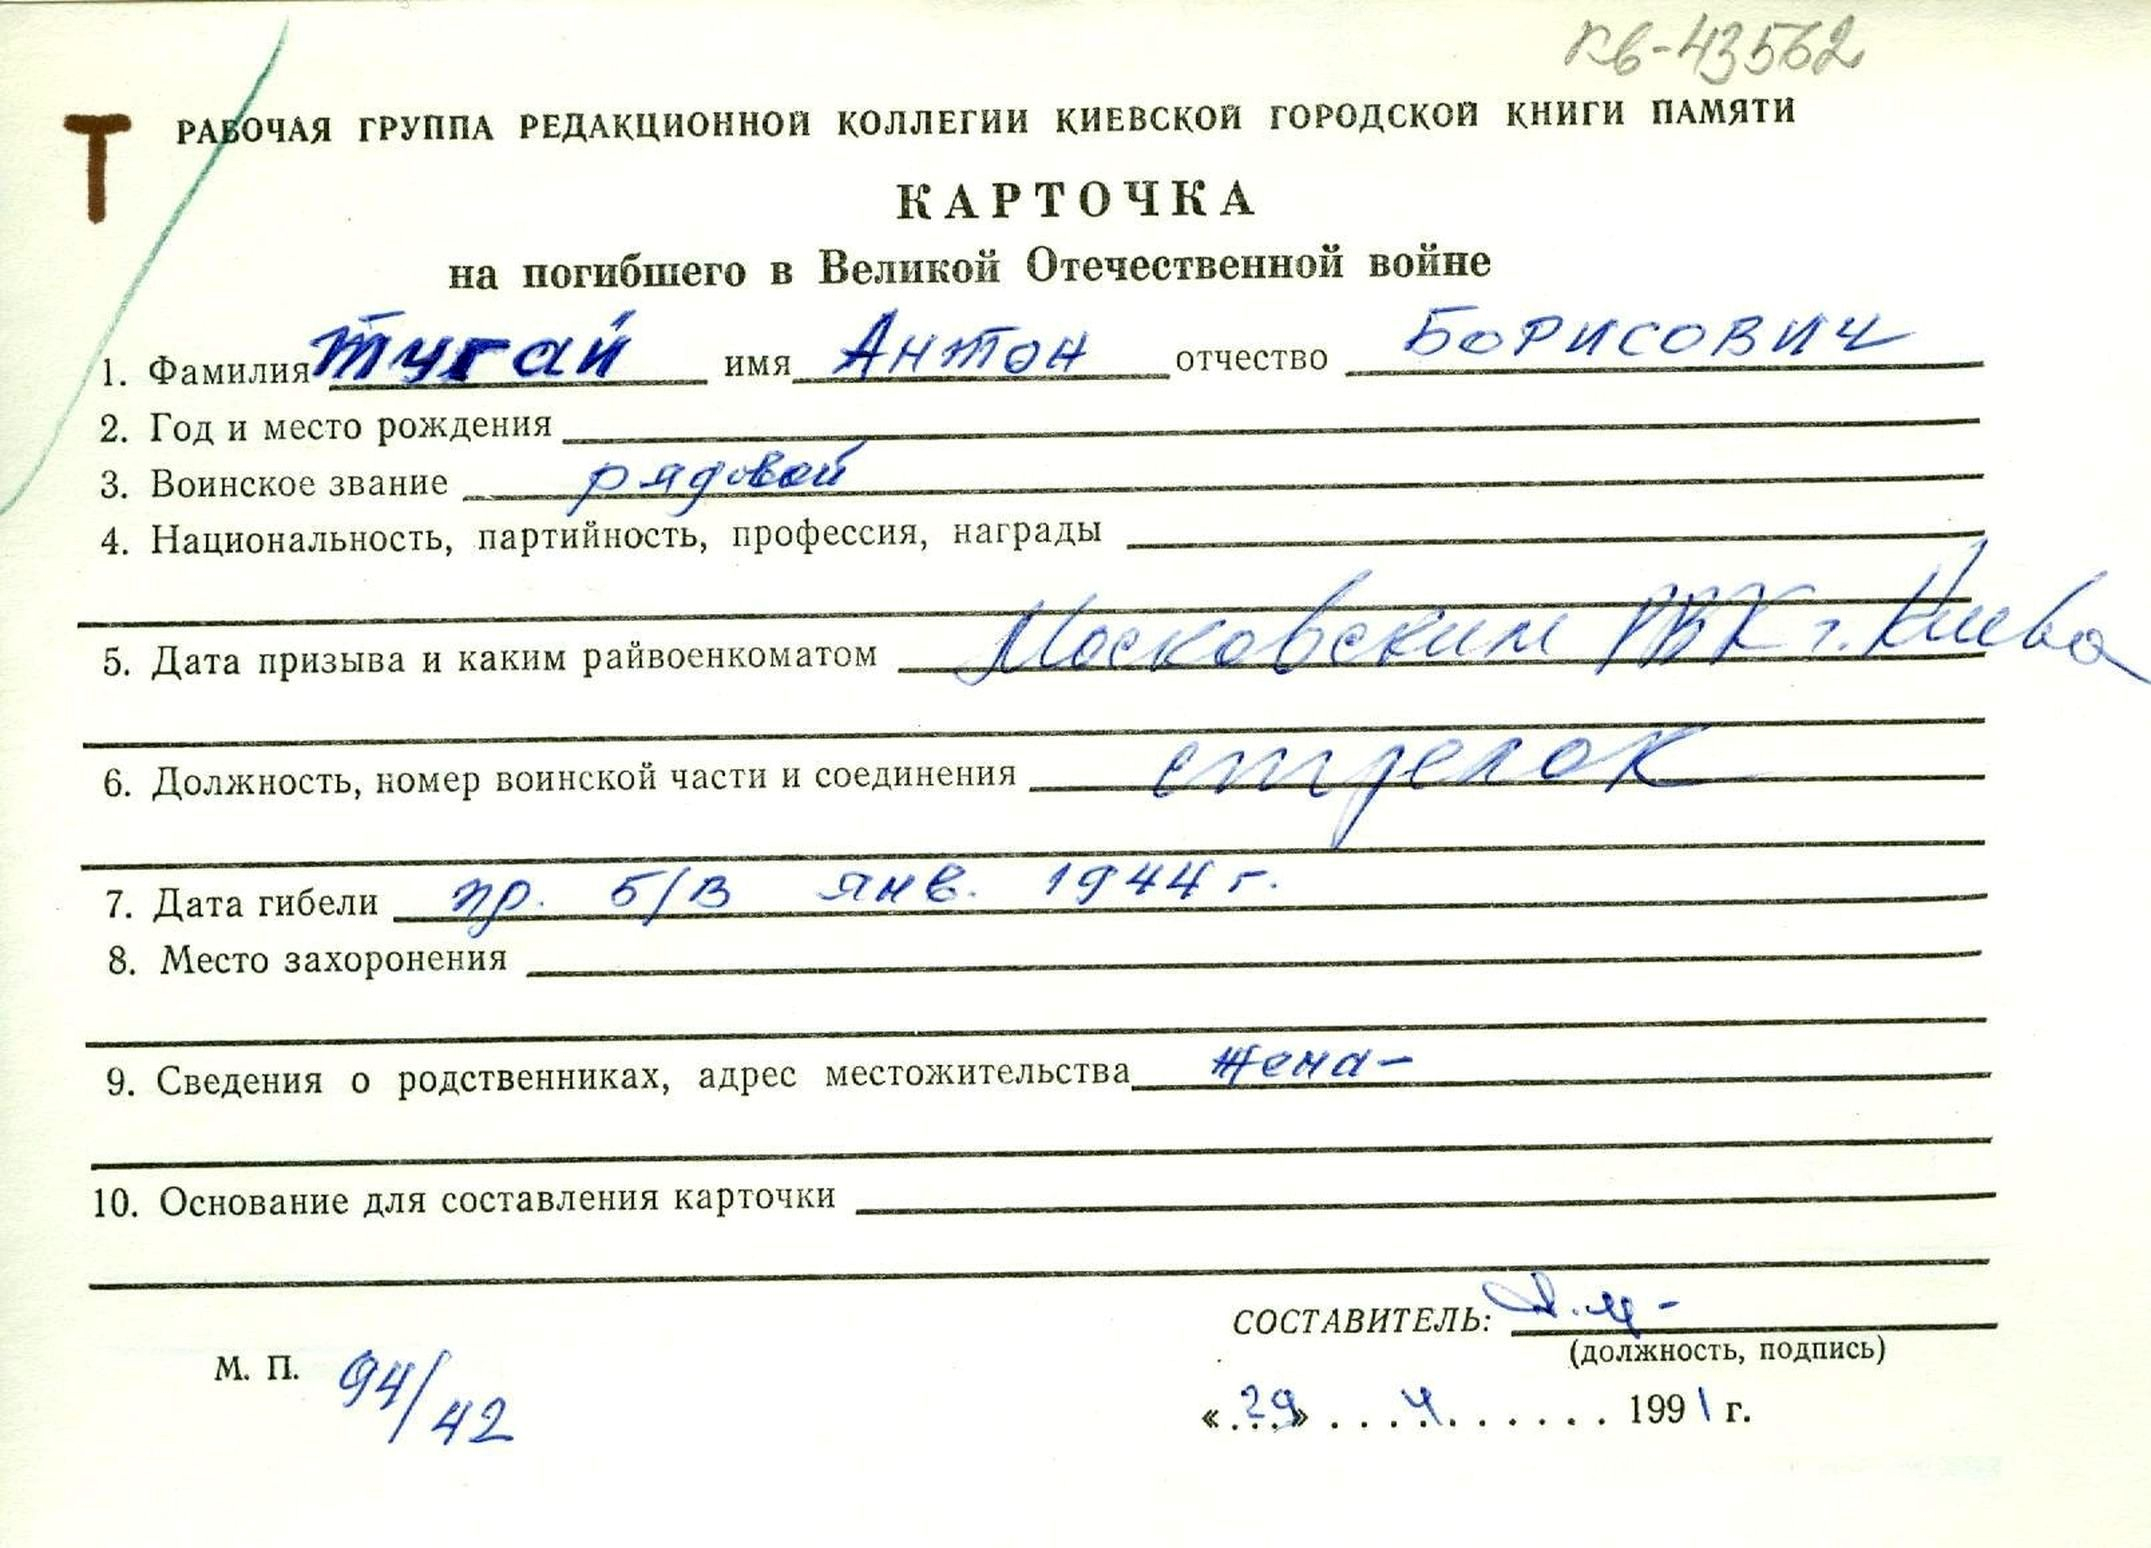 КВ-43562
Т
РАБОЧАЯ ГРУППА РЕДАКЦИОННОЙ КОЛЛЕГИИ КИЕВСКОЙ ГОРОДСКОЙ КНИГИ ПАМЯТИ
КАРТОЧКА
на погибшего в Великой Отечественной войне
1. Фамилия Тугай имя Антон отчество Борисович
2. Год и место рождения
3. Воинское звание рядовой
4. Национальность, партийность, профессия, награды
5. Дата призыва и каким райвоенкоматом Московским РВК г. Киева
6. Должность, номер воинской части и соединения стрелок
7. Дата гибели пр. б/в янв. 1944 г.
8. Место захоронения
9. Сведения о родственниках, адрес местожительства жена-
10. Основание для составления карточки
СОСТАВИТЕЛЬ:
(должность, подпись)
М. П. 94/42
«29» 4 1991 г.